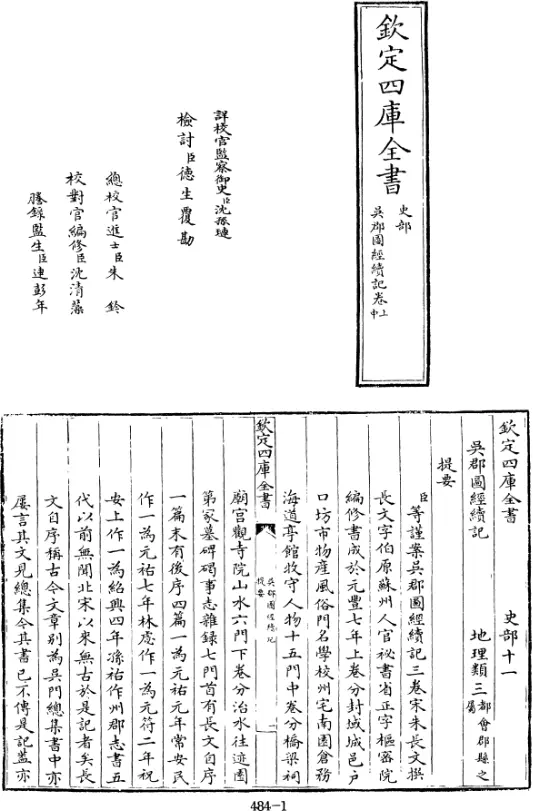 欽定四庫全書
史部
吳郡圖經續記卷上中
詳校官監察御史臣沈孫璉
檢討臣德生覆勘
總校官進士臣朱鈐
校對官編修臣沈清藻
謄錄監生臣連彭年
欽定四庫全書
史部十一
吳郡圖經續記
地理類三都會郡縣之屬
提要
臣等謹案吳郡圖經續記三卷宋朱長文撰
長文字伯原蘇州人官祕書省正字樞密院
編修書成於元豐七年上卷分封域城邑戶
口坊市物產風俗門名學校州宅南園倉務
海道亭館牧守人物十五門中卷分橋梁祠
欽定四庫全書
吳郡圖經續記
提要
廟宫觀寺院山水六門下卷分治水往迹園
第冢墓碑碣事志雜錄七門首有長文自序
一篇末有後序四篇一為元祐元年常安民
作一為元祐七年林虙作一為元符二年祝
安上作一為紹興四年孫祐作州郡志書五
代以前無聞北宋以來無古於是記者矣長
文自序稱古今文章别為吳門總集書中亦
屢言其文見總集今其書已不傳是記蓋亦
484-1